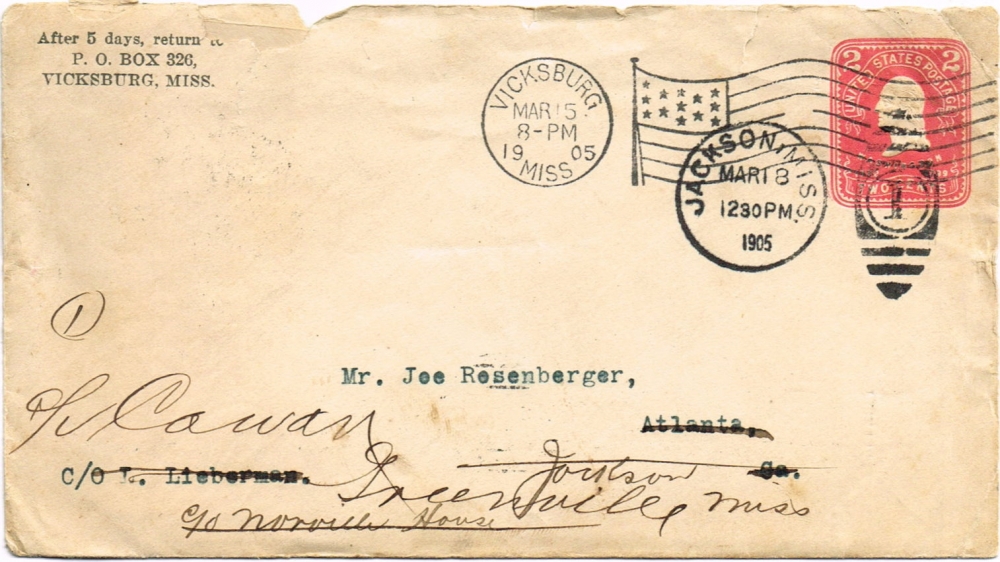 After 5 days, return to
P. O. BOX 326,
VICKSBURG, MISS.
VICKSBURG
MAR 15
8-PM
19 05
MISS
JACKSON, MISS.
MAR 18
1230PM
1905
2 2
UNITED STATES POSTAGE
TWO CENTS
1
1
Mr. Joe Rosenberger,
Atlanta,
Ga.
C/O L. Lieberman.
c/o Cowan
Jackson
Greenville Miss
c/o Norville House